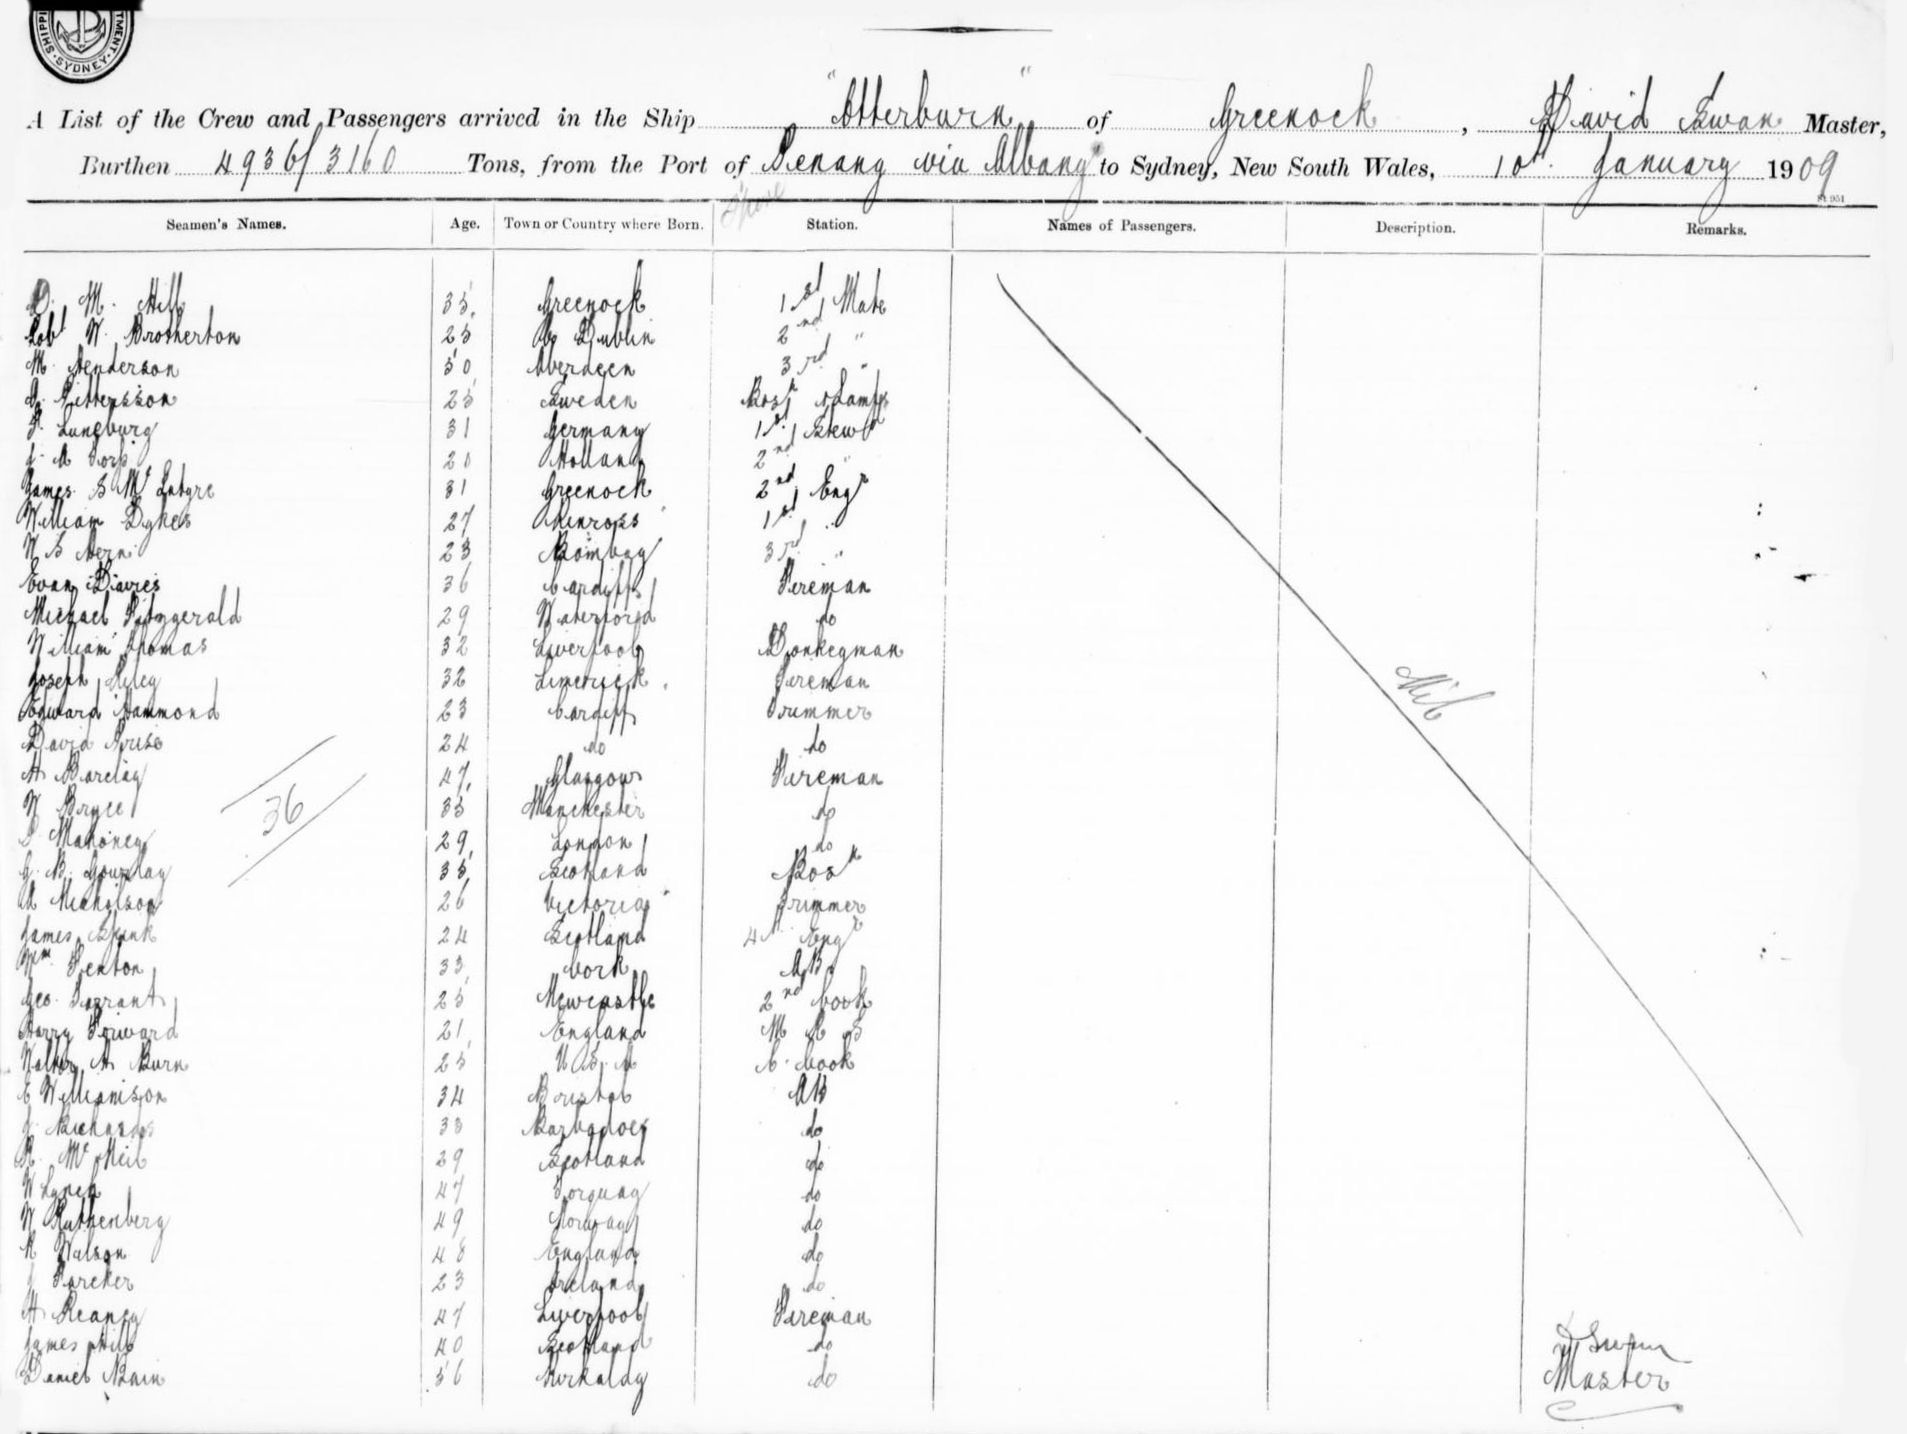 SHIPPI TMENT SYDNEY
A List of the Crew and Passengers arrived in the Ship "Otterburn" of Greenock, David Swan Master,
Burthen 4936/3160 Tons, from the Port of Penang via Albany to Sydney, New South Wales, 10th January 1909
Seamen's Names. Age. Town or Country where Born. Station. Names of Passengers. Description. Remarks.
D. M. Hill 35 Greenock 1st Mate
Robt W. Brotherton 25 Co Dublin 2nd "
M. Henderson 50 Aberdeen 3rd "
Pittersson 25 Sweden Bosn & Lamps
Luneburg 31 Germany 1st Stewd
20 Holland 2nd "
James S McIntyre 31 Greenock 2nd Engr
William Dykes 27 Kinross 1st "
W S Hern 23 Bombay 3rd "
Evan Davies 36 Cardiff Fireman
Michael Fitzgerald 29 Waterford do
William Thomas 32 Liverpool Donkeyman
Joseph Riley 32 Limerick Fireman
Edward Hammond 23 Cardiff Trimmer
David 24 do do
H Barclay 47 Glasgow Fireman
W Bryce 35 Manchester do
Mahoney 29 London do
G. B. Gourlay 35 Scotland Bosn
A Nicholson 26 Victoria Trimmer
James Spink 24 Scotland 4th Engr
Wm Fenton 33 Cork AB
Geo. Tarrant 25 Newcastle 2nd Cook
Harry 21 England M R S
Walter H Burn 25 U S A C. Cook
E Williamson 34 Bristol AB
J. Richards 33 Barbadoes do
R. McNeil 29 Scotland do
W Lynch 47 Torquay do
W Ruthenberg 49 Norway do
R Watson 48 England do
J Parcker 23 Ireland do
H Reaney 47 Liverpool Fireman
James Hill 40 Scotland do
Daniel Bain 36 Kirkaldy do
36
Nil
D Swan
Master